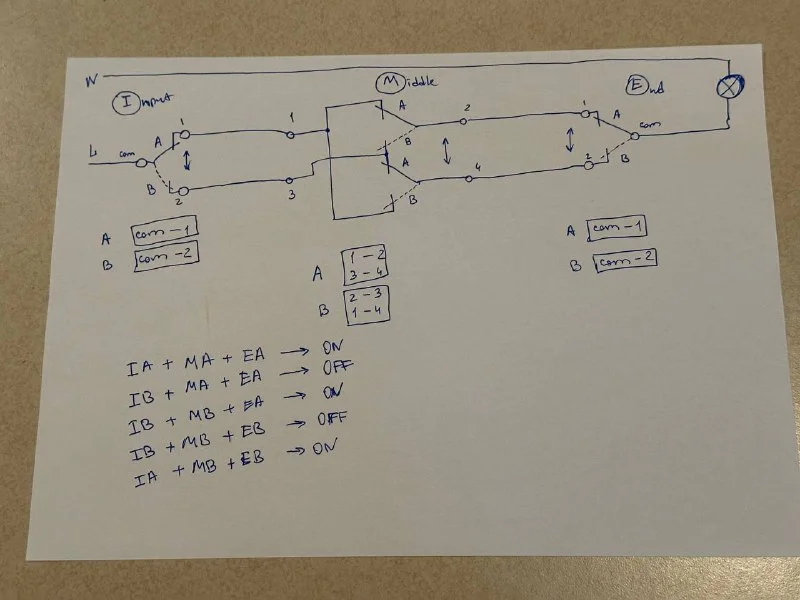 N
Middle
Input
End
1
1
A
2
1
A
L
com
A
B
com
A
B
B
2
3
B
4
2
A com-1
B com-2
A com-1
B com-2
A 1-2
3-4
B 2-3
1-4
IA + MA + EA → ON
IB + MA + EA → OFF
IB + MB + EA → ON
IB + MB + EB → OFF
IA + MB + EB → ON